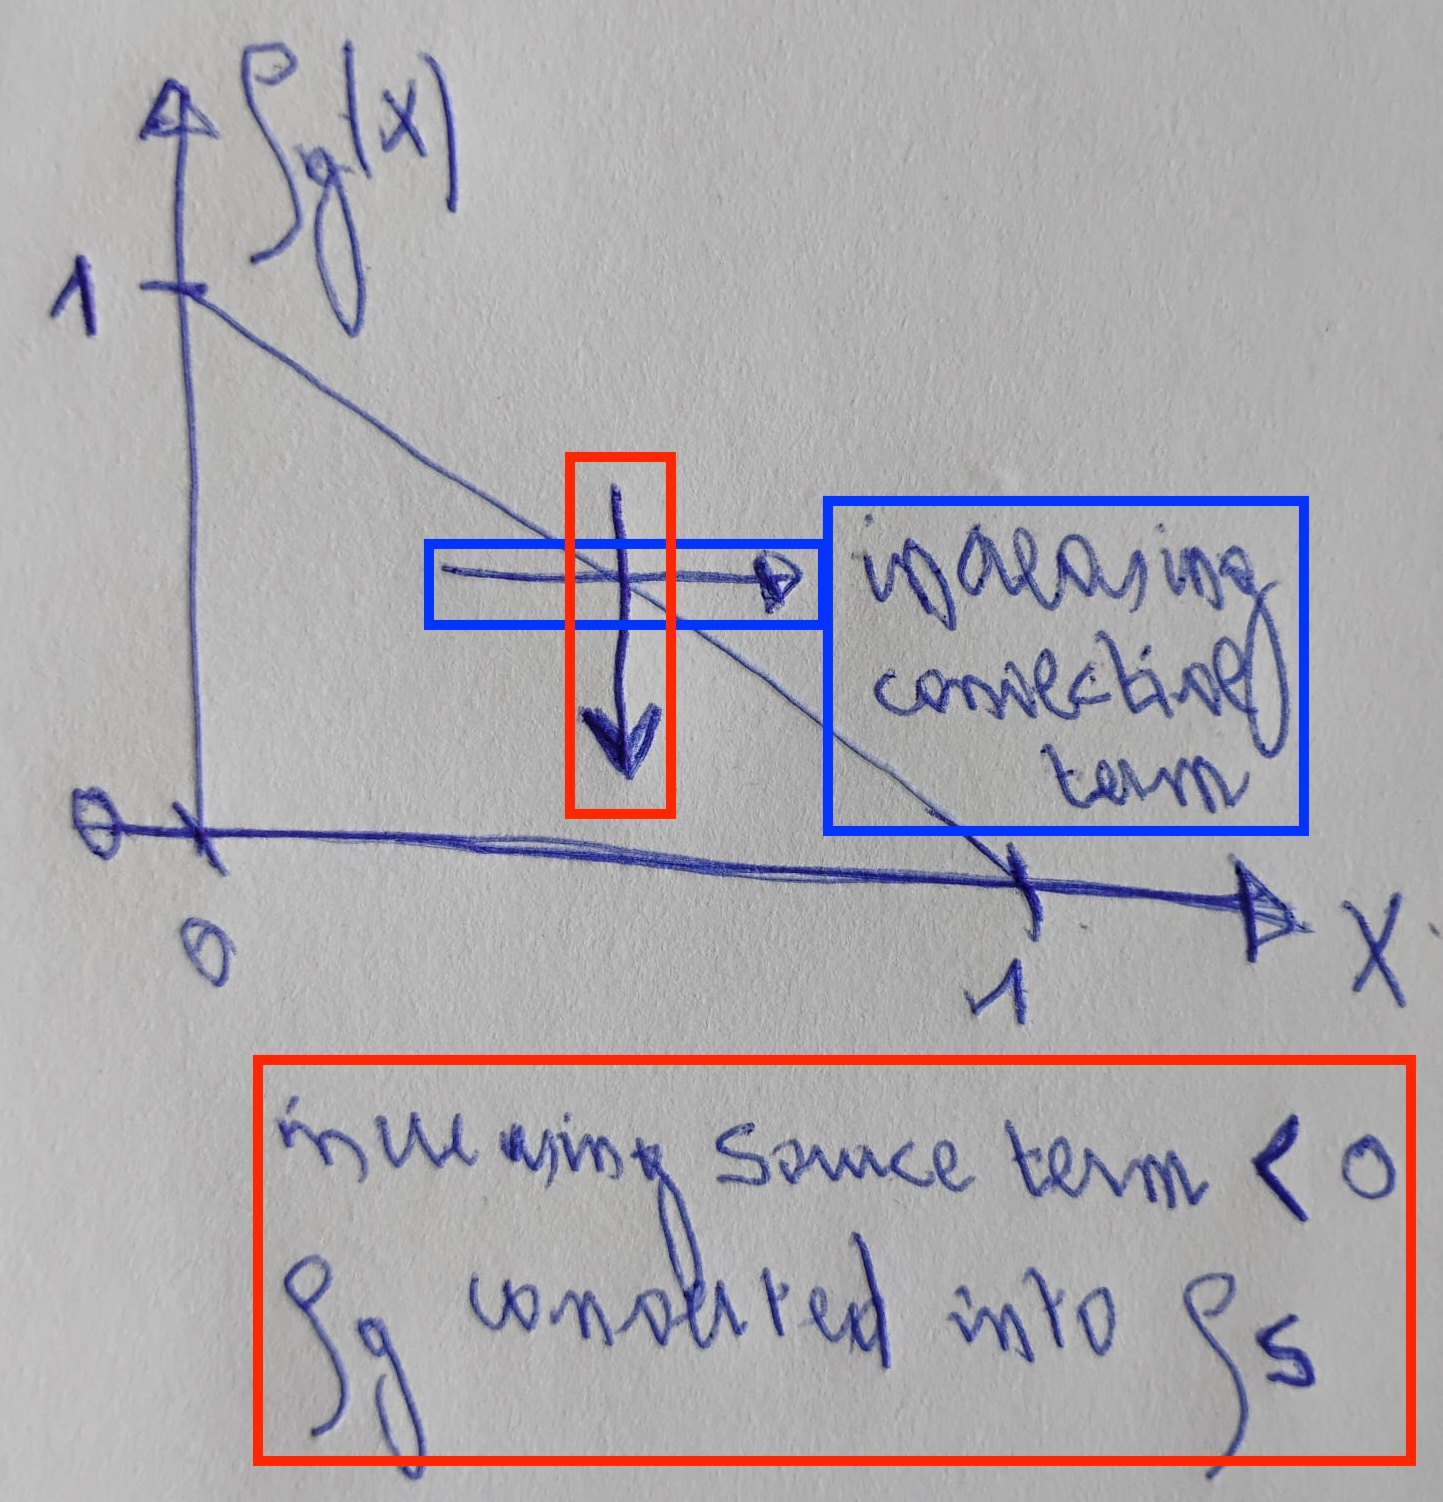 ρg(x)
1
increasing
convective
term
0
0
1
x
increasing source term < 0
ρg converted into ρs